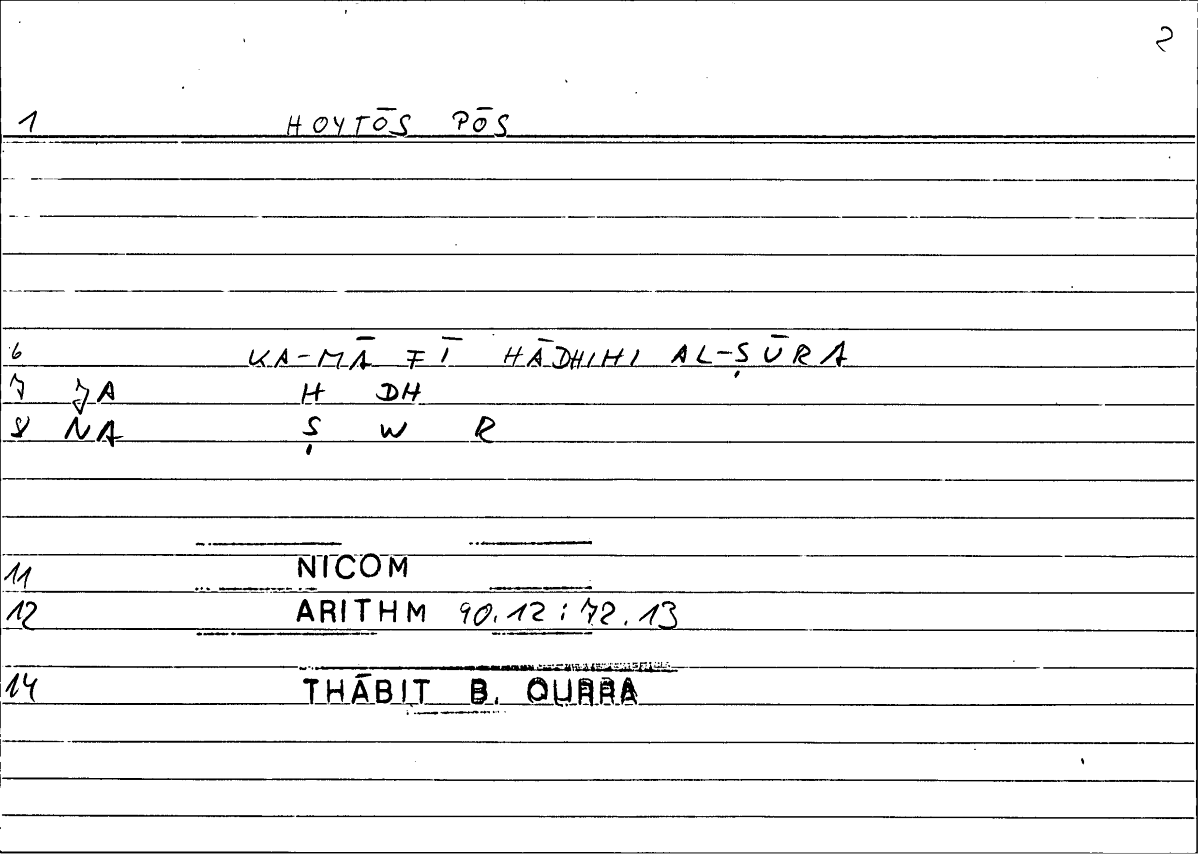 2
1 HOYTŌS PŌS
6 KA-MĀ FĪ HĀDHIHI AL-ṢŪRA
7 JA H DH
8 NA Ṣ W R
11 NICOM
12 ARITHM 90.12 : 72.13
14 THĀBIT B. QURRA